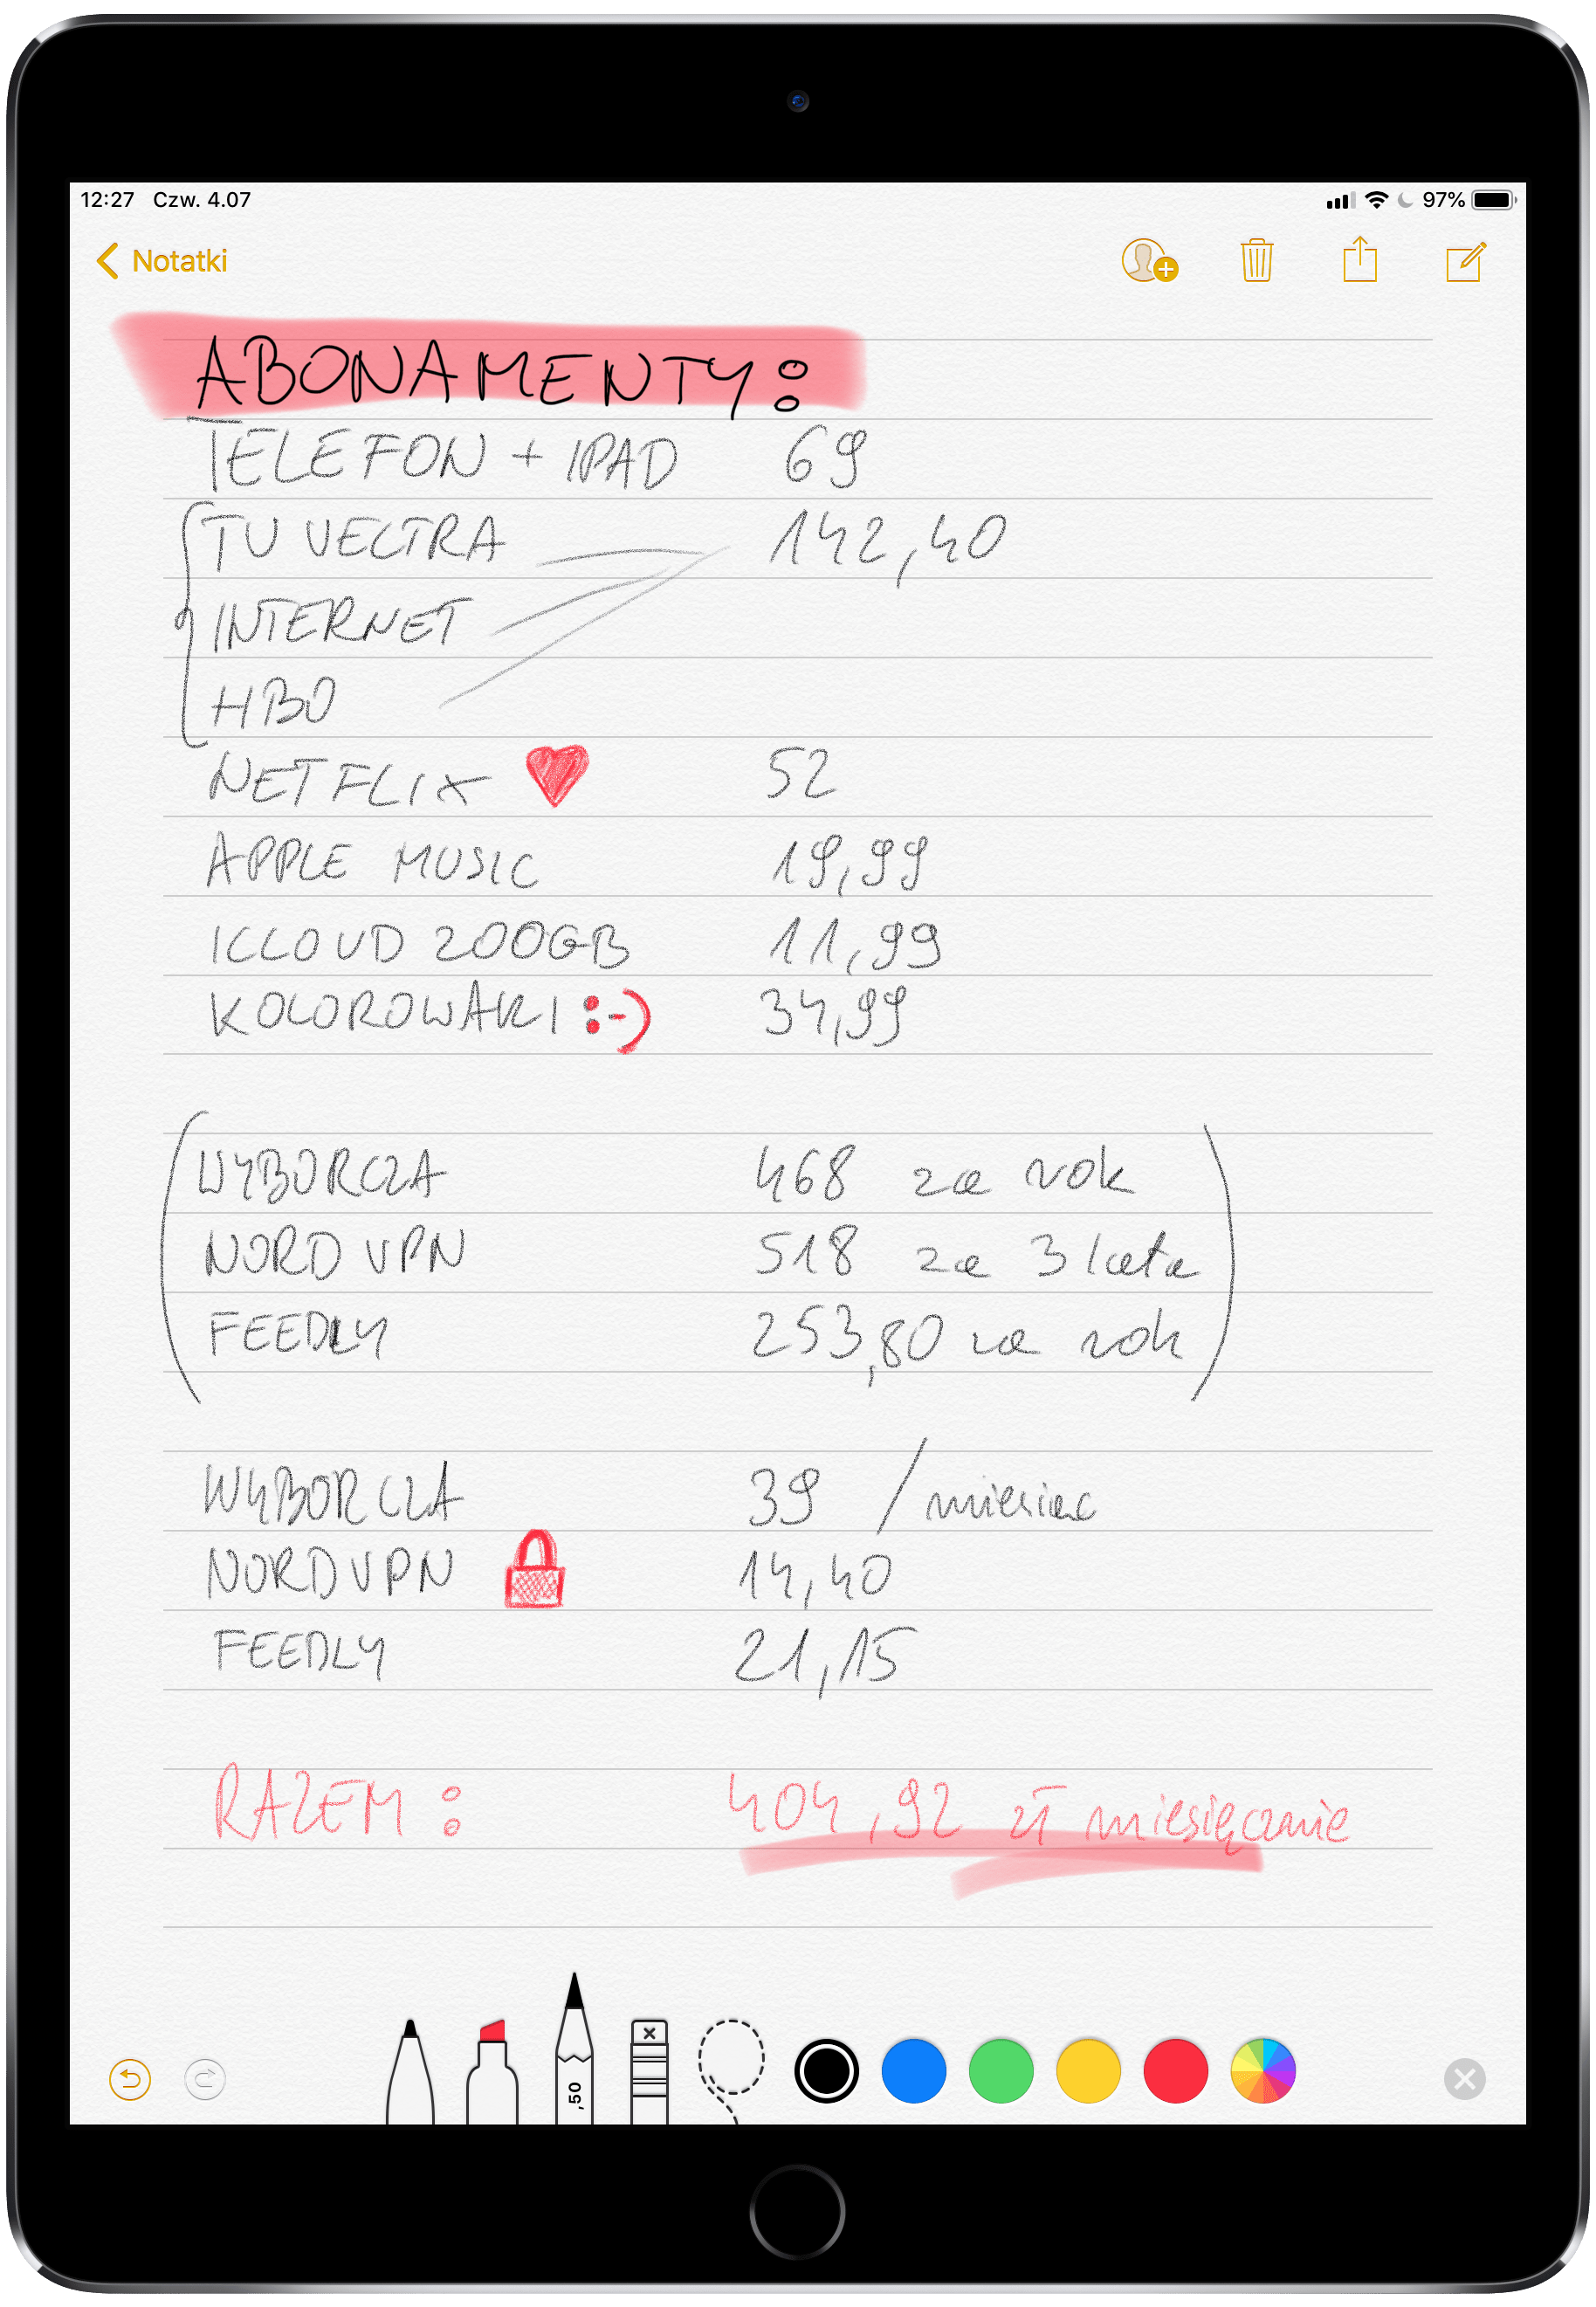 12:27 Czw. 4.07 97%
Notatki
ABONAMENTY:
TELEFON + IPAD 69
TV VECTRA 142,40
INTERNET
HBO
NETFLIX 52
APPLE MUSIC 19,99
ICLOUD 200GB 11,99
KOLOROWAKI :-) 34,99
WYBORCZA 468 za rok
NORD VPN 518 za 3 lata
FEEDLY 253,80 za rok
WYBORCZA 39 / miesiąc
NORDVPN 14,40
FEEDLY 21,15
RAZEM: 404,92 zł miesięcznie
,50